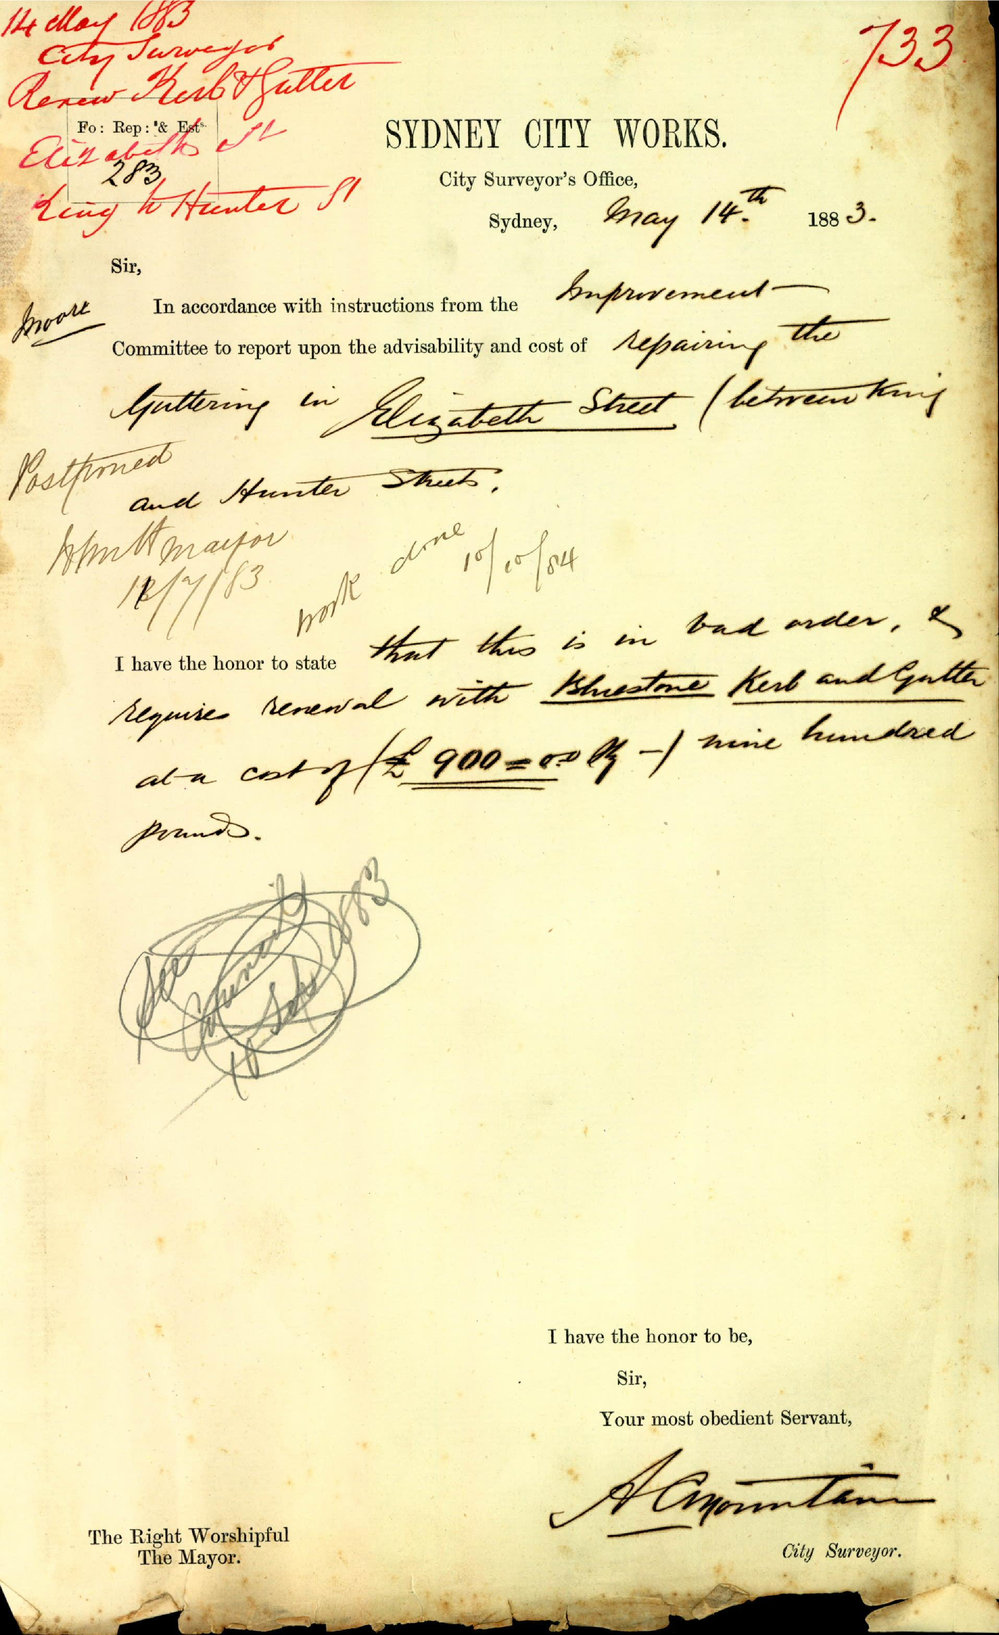 14 May 1883
City Surveyor
Renew Kerb & Gutter
Fo: Rep: & Ests
Elizabeth St
283
King to Hunter St
733
SYDNEY CITY WORKS.
City Surveyor's Office,
Sydney, May 14.th 1883.
Sir,
Moore
In accordance with instructions from the Improvement
Committee to report upon the advisability and cost of repairing the
Guttering in Elizabeth Street (between King
and Hunter Streets.
Postponed
Mayor
/7/83
work done 10/10/84
I have the honor to state that this is in bad order, &
requires renewal with Bluestone Kerb and Gutter
at a cost of (£ 900=0.0 –) nine hundred
pounds.
See
Council
18 Sep 1883
I have the honor to be,
Sir,
Your most obedient Servant,
A C Mountain
City Surveyor.
The Right Worshipful
The Mayor.